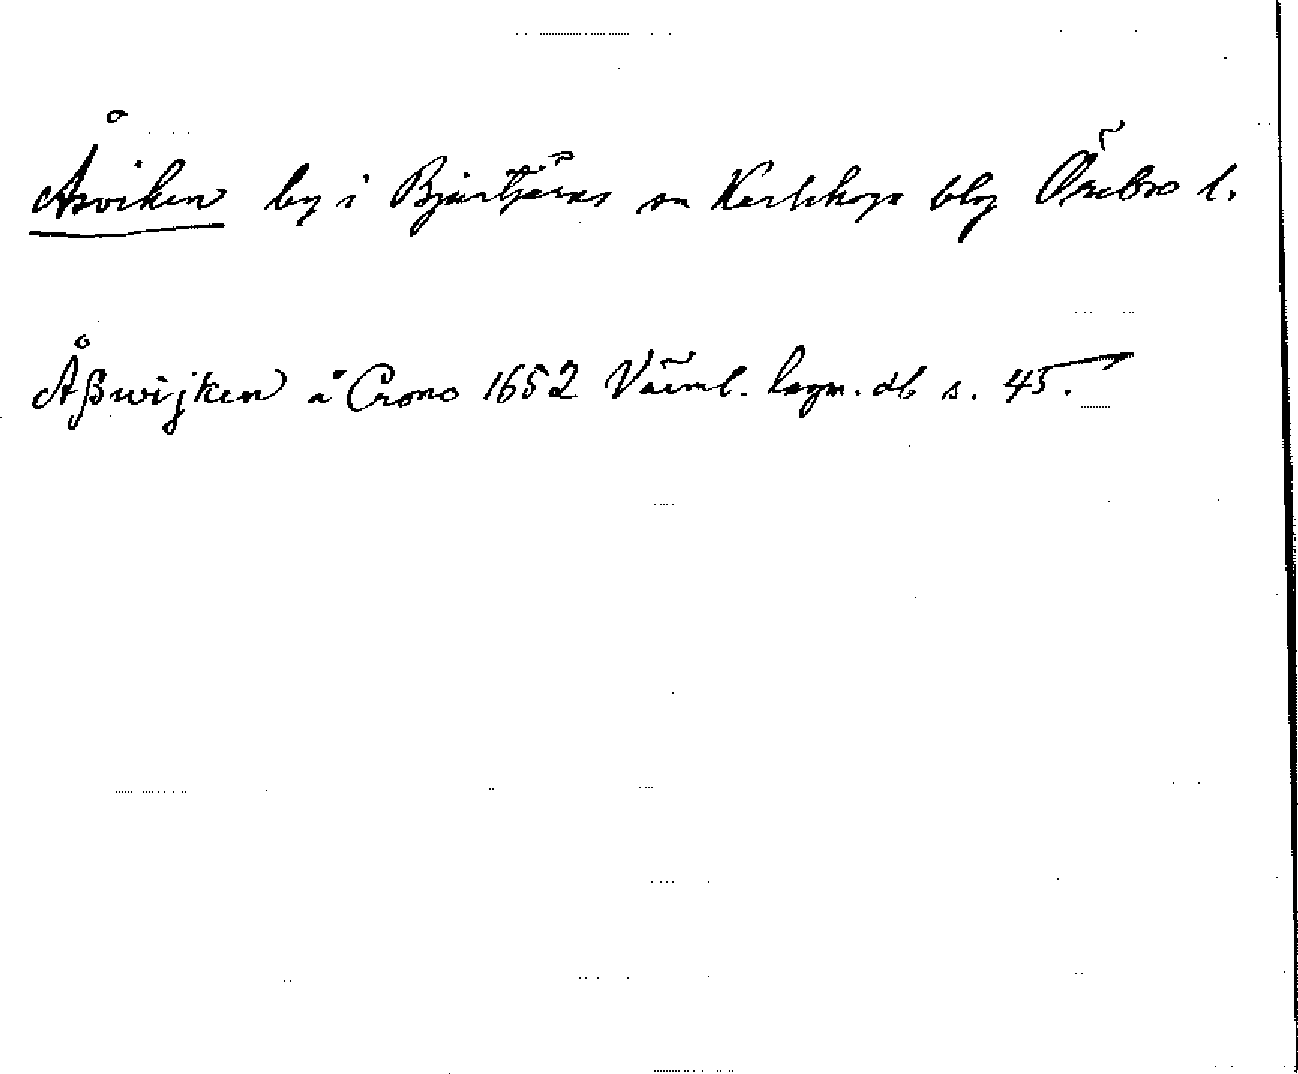 Åsviken by i Bjurtjärns sn Karlskoga blg Örebro l.
Åßwijken å Crono 1652 Värml. lagm. db s. 45.